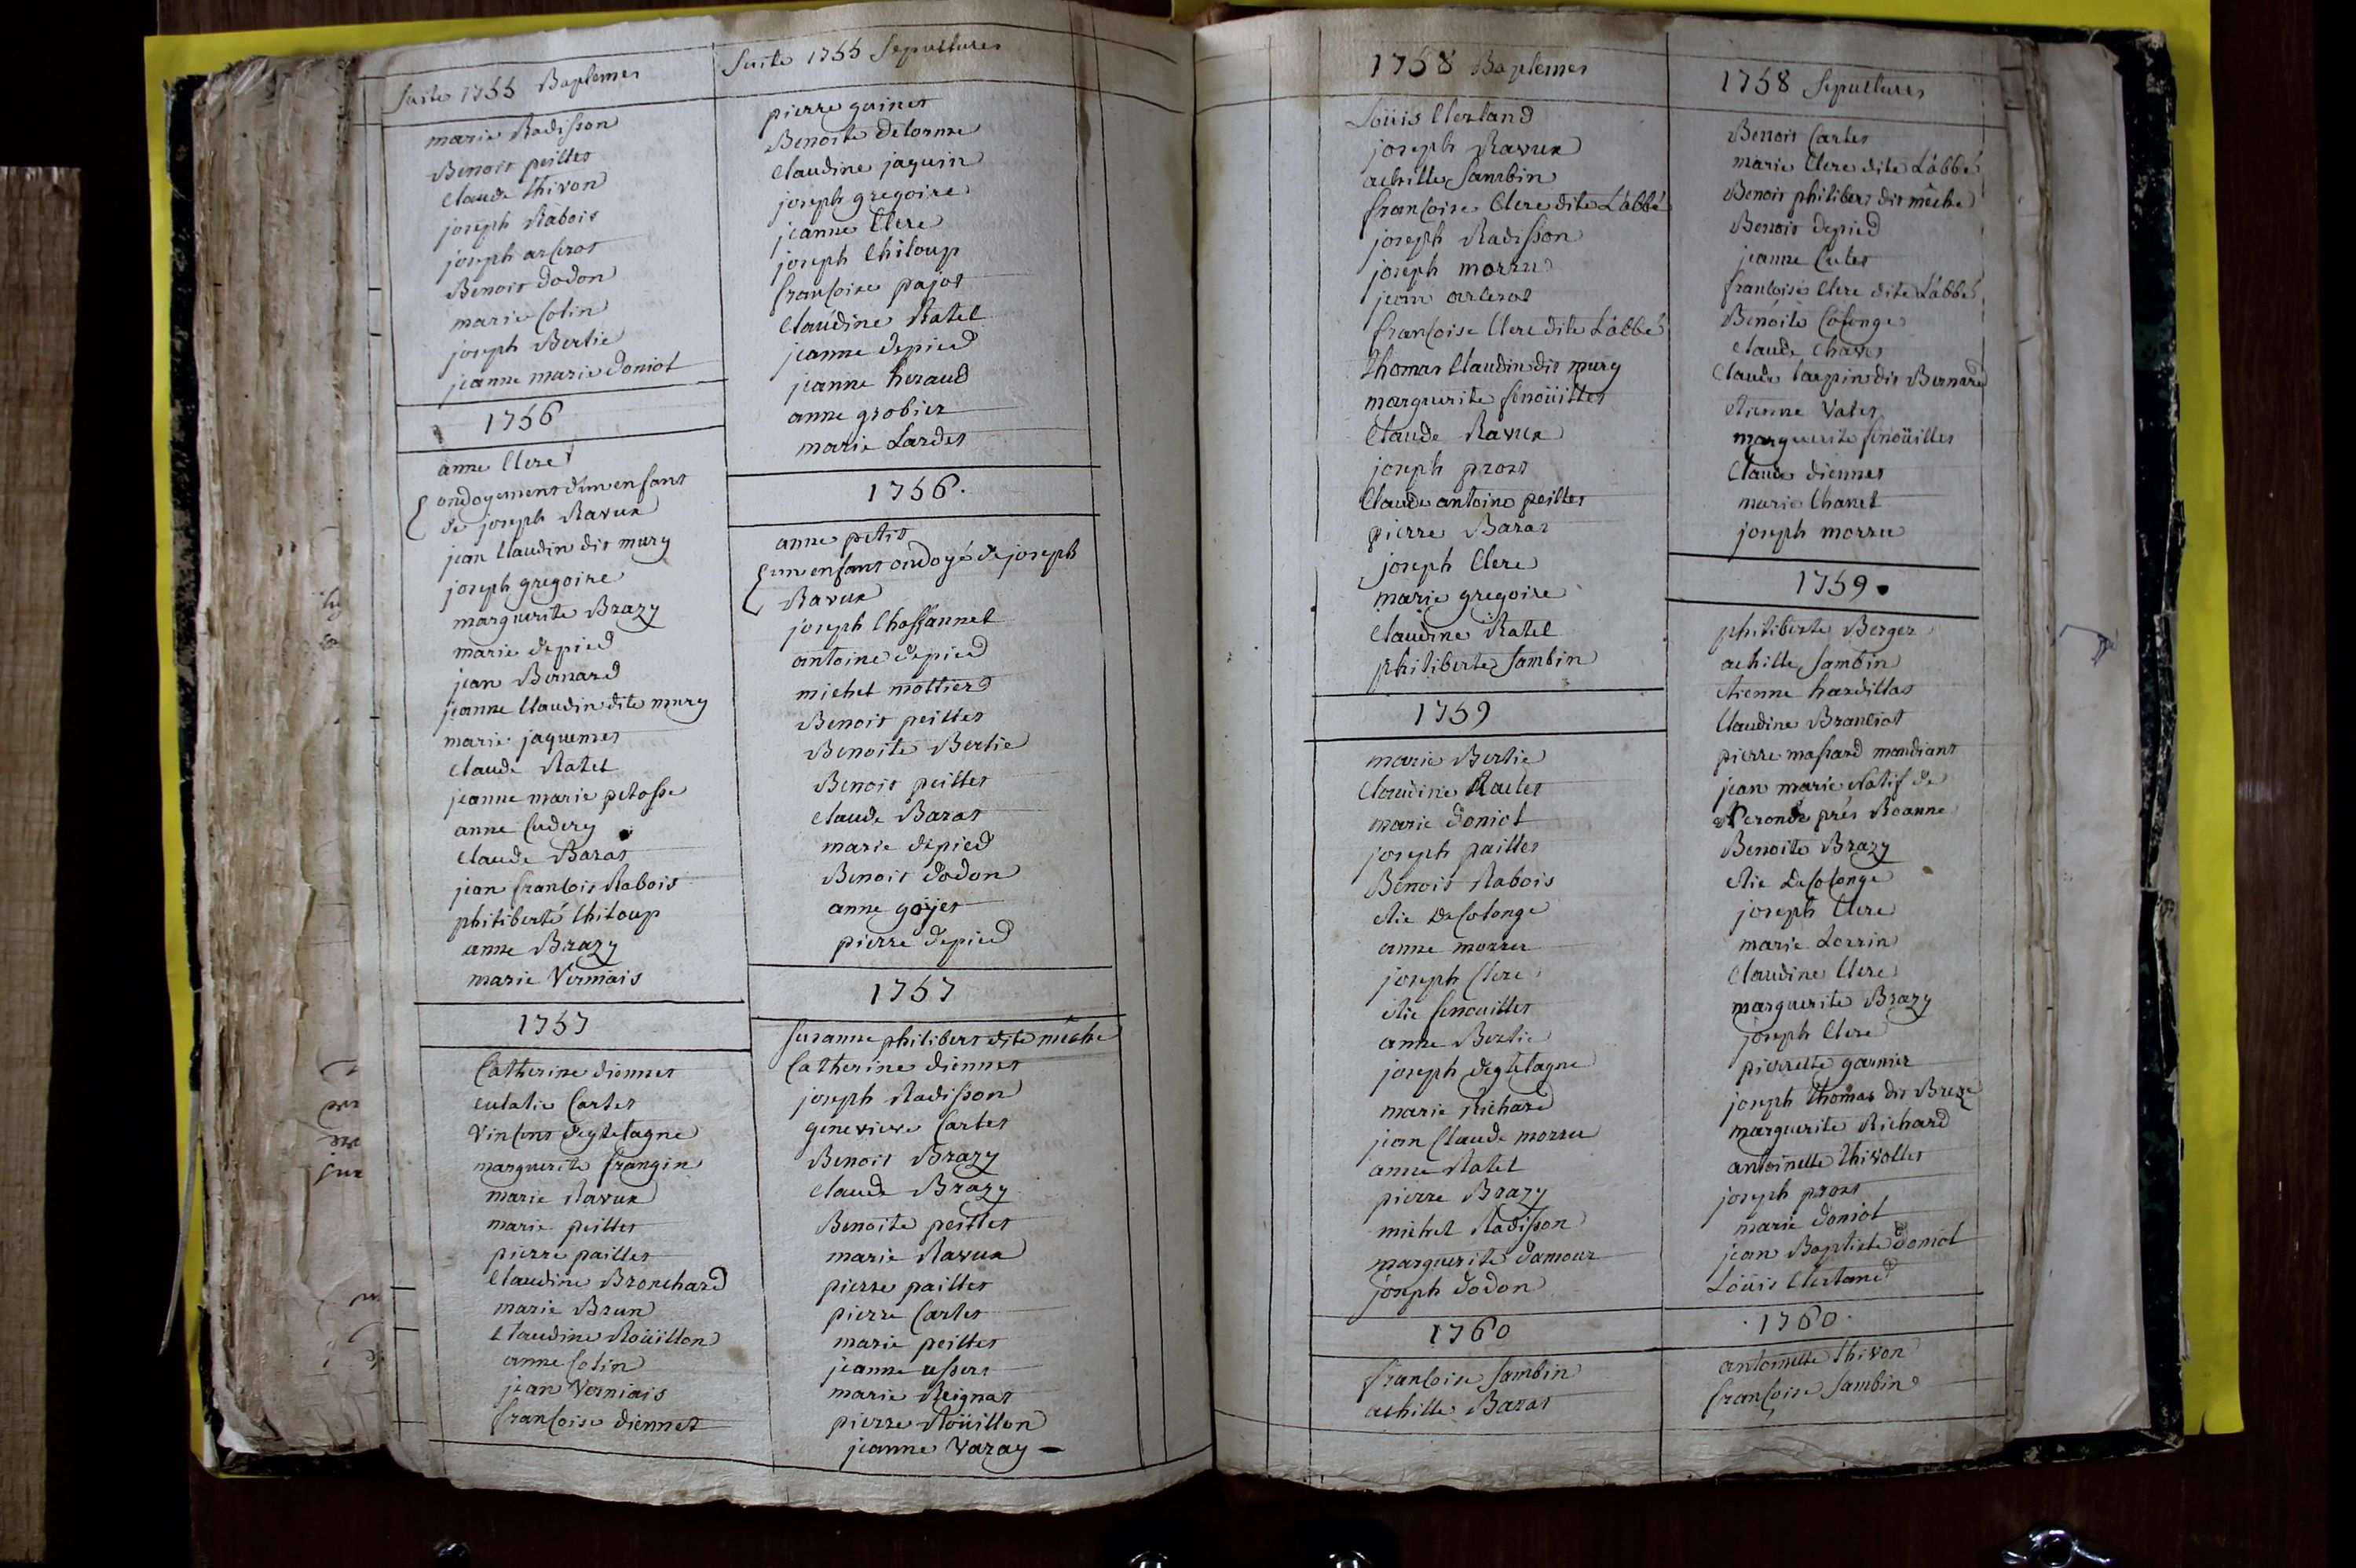 Suite 1755 Baptemes
marie Radisson
Benoit peillet
Claude thivon
joseph Rabois
joseph arcrot
Benoit dodon
marie Colin
joseph Bertie
jeanne marie doniol
1756
anne Clere
ondoyement d'un enfant
de joseph Ravux
jean Claudin dit mury
joseph gregoire
marguerite Brazy
marie depied
jean Bernard
jeanne Claudin dite mury
marie jaquemet
Claude Ratel
jeanne marie petosse
anne Cudery
Claude Barat
jean francois Rabois
philiberte Chiloup
anne Brazy
marie Verniais
1757
Catherine diennet
eulalie Cartet
Vincent degletagne
marguerite frangin
marie Ravux
marie peillet
pierre paillet
Claudine Bronchard
marie Brun
Claudine Roüillon
anne Colin
jean Verniais
francoise diennet
Suite 1755 Sepultures
pierre guinet
Benoite delorme
Claudine jaquin
joseph gregoire
jeanne Clere
joseph Chiloup
francoise pajot
Claudine Ratel
jeanne depied
jeanne heraud
anne grobier
marie Lardet
1756.
anne petit
un enfant ondoyé de joseph
Ravux
joseph Chossannel
antoine depied
michel mottierd
Benoit peillet
Benoite Bertie
Benoit peillet
Claude Barat
marie depied
Benoit dodon
anne goijet
pierre depied
1757
Susanne philibert dite mèche
Catherine diennet
joseph Radisson
genevieve Cartet
Benoit Brazy
Claude Brazy
Benoite peillet
marie Ravux
pierre paillet
pierre Cartet
marie peillet
jeanne ussert
marie Reignat
pierre Roüillon
jeanne Varay
1758 Baptemes
Loüis Clerland
joseph Ravux
achille Sambin
francoise Clere dite Labbé
joseph Radisson
joseph morru
jean arcrot
francoise Clere dite Labbé
thomas Claudin dit mury
marguerite fenoüillet
Claude Ravux
joseph prost
Claude antoine peillet
pierre Barat
joseph Clere
marie gregoire
Claudine Ratel
philiberte Sambin
1759
marie Bertie
Claudine Raclet
marie doniol
joseph paillet
Benoit Rabois
elie De Colonge
anne morru
joseph Clere
elie fenouillet
anne Bertie
joseph degletagne
marie Richard
jean Claude morru
anne Ratel
pierre Brazy
michel Radisson
marguerite damour
joseph dodon
1760
francoise Sambin
achille Barat
1758 Sepultures
Benoit Cartet
marie Clere dite Labbé
Benoit philibert dit mèche
Benoit depied
jeanne Culet
francoise Clere dite Labbé
Benoite Colonge
Claude Chavet
Claude Carpin dit Bernard
etienne Valet
marguerite fenoüillet
Claude diennet
marie Chanel
joseph morru
1759.
philiberte Berger
achille Sambin
etienne hardillat
Claudine Branciat
pierre massard mandiant
jean marie Natif de
Neronde prés Roanne
Benoite Brazy
elie De Colonge
joseph Clere
marie Lorrin
Claudine Clere
marguerite Brazy
joseph Clere
pierrette garnier
joseph thomas dit Breze
marguerite Richard
antoinette thivollet
joseph prost
marie doniol
jean Baptiste doniol
Loüis Clerland
1760.
antoinette thivon
francoise Sambin